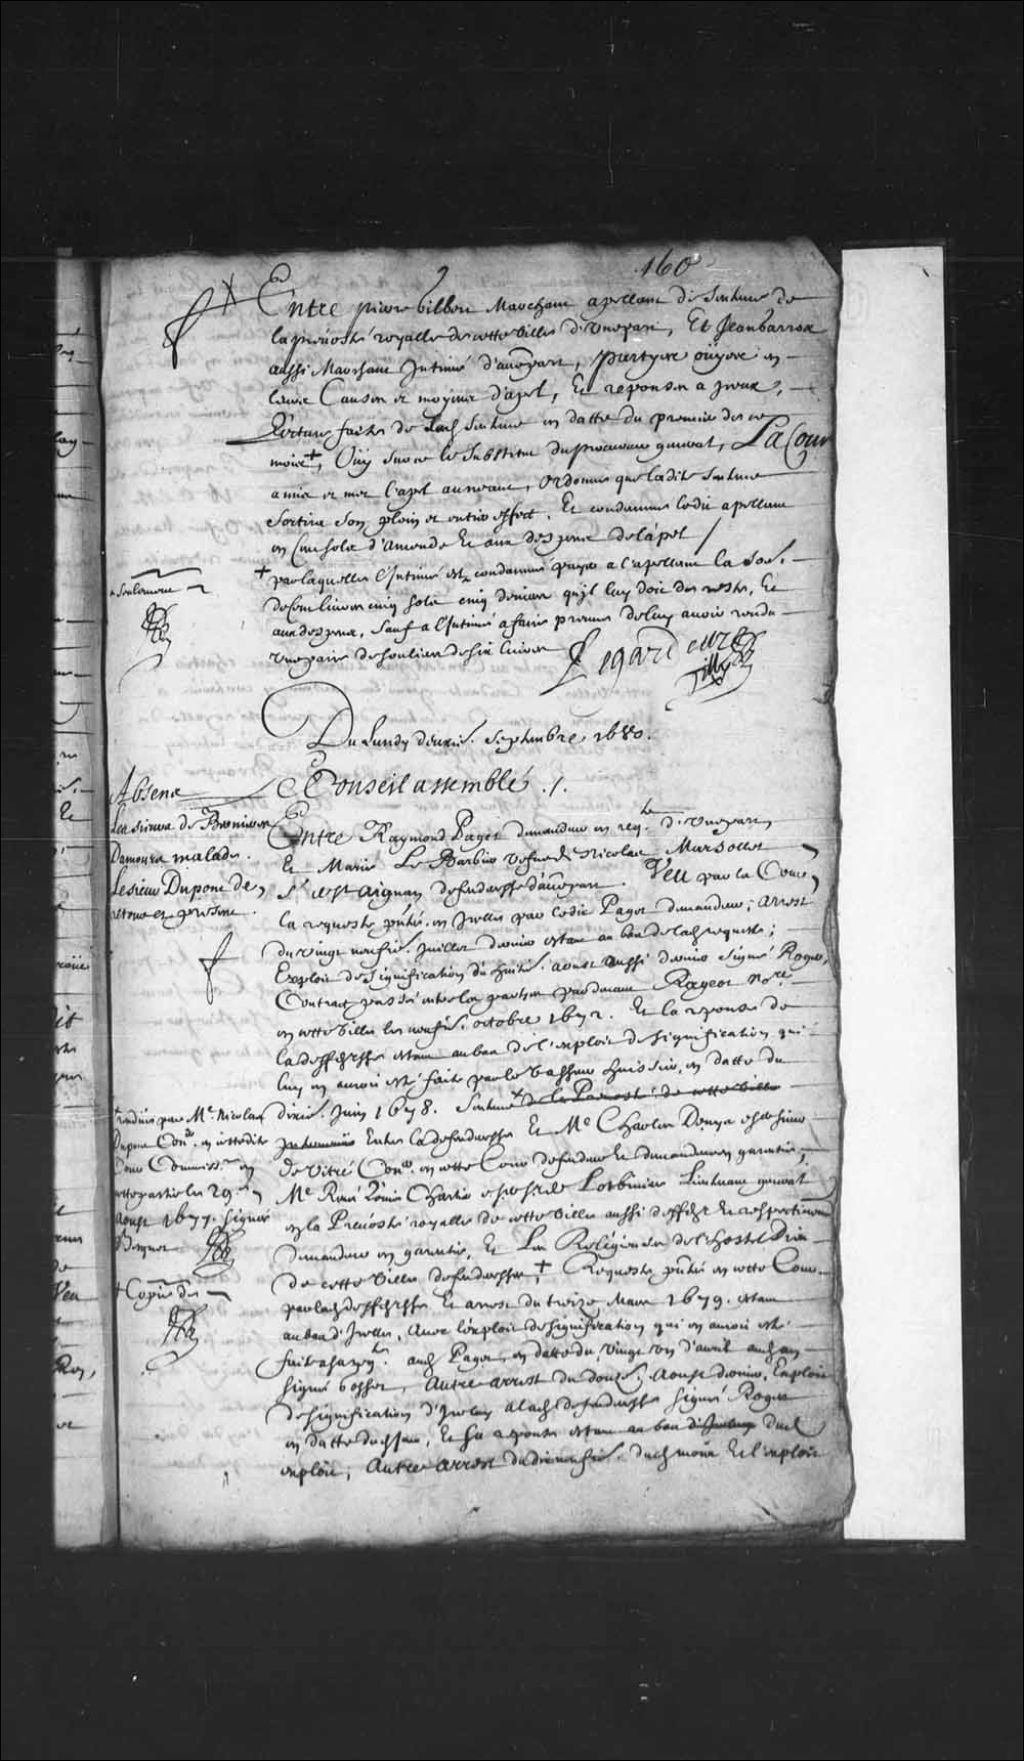 160
Entre pierre billon Marchant apellant de Sentence de
la prévosté royalle de cette ville d'une part, Et Jean
aussi Marchant Intimé d'autre part, partyes ouyes en
leurs Causes et moyens d'apel, Et reponses a iceux,
Lecture faite de lad Sentence en datte du premier de ce
mois +, Ouy sur ce le Substitut du procureur general, La Cour
a mis et met l'apel au neant, Ordonne que ladite sentence
Sortira Son plein et entier effect. Et condamne ledit apellant
en Cinq sols d'amende Et aux despens de l'apel /
+ par laquelle l'Intimé est condamné payer a l'apellant la Som.
de livres cinq sols cinq deniers qu'il luy doit de reste, Et
aux despens, Sauf a l'Intimé a faire preuve de luy avoir rendu
Une paire de souliers de six livres
+ Seulement
Du Lundy deuxie. Septembre 1680.
Conseil assemblé ./.
Absens
Les sieurs de
Damours malade.
Le sieur Dupont de
retour et present.
Entre Raymond Paget demandeur en reqte. d'une part,
Et Marie Le Barbier Vefve de Nicolas Marsollet
Sr. de St Aignan deffenderesse d'autre part. Veu par la Cour
la requeste pntée. en Icelle par ledit Paget demandeur; arrest
du vingt neufie. Juillet dernier estant au bas de lad requeste;
Exploit de signification du huitie. aoust aussi dernier Signé Roger,
Contract passé entre les parties pardevant Rageot Nore.
en cette ville le neufie. octobre 1672. Et la reponse de
la deffendresse estant au bas de l'exploit de signification qui
luy en auroit esté faite par le Vasseur huissier, en datte du
dixie. Juin 1678. Sentence + de la Prevosté de cette ville
Entre la deffenderesse Et Me Charles Denys escr sieur
de Vitré Conser. en cette Cour deffendeur Et demandeur en garentie,
Me René Louis Chartier escr sr de Lotbiniere Lieutenant general
en la Prevosté royalle de cette ville aussi deffendr Et respectivement
demandeur en garentie, Et Les Religieuses de l'hostel Dieu
de cette ville deffenderesses +, Requeste pntée en cette Cour
par lad deffendresse Et arrest du treize Mars 1679. estant
au bas d'Icelle, Avec l'exploit de signification qui en auroit esté
fait aud Paget, en datte du vingt un d'avril aud an
signé gosset, Autre arrest du douze. Aoust dernier, Exploit
de signification d'Iceluy a lad deffenderesse signé Roger
en datte dud jour, Et sa reponse estant au bas d'Iceluy dud
exploit, Autre arrest du dixneufie. dud mois Et l'exploit
+ rendue par Me. Nicolas
Dupont Coner. en cettedite
Cour Commissre. en
cette partie le 29e
Aoust 1677. signée
Becquet
+ Copie de